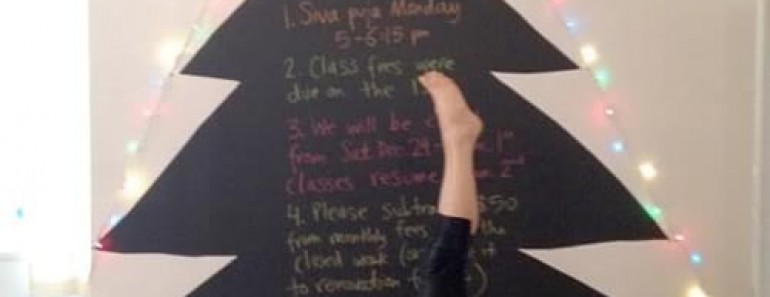 1. Siva puja Monday
5-6:15 pm
2. Class fees were
due on the
3. We will be
from Sat Dec. 29
classes resume 2nd
4. Please subtract $50
from monthly fees the
closed week (or it
to renovation